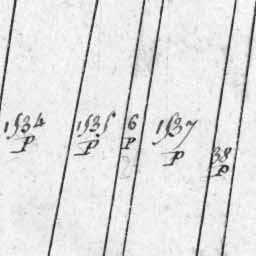 1534
P
1535
P
6
P
1537
P
38
P